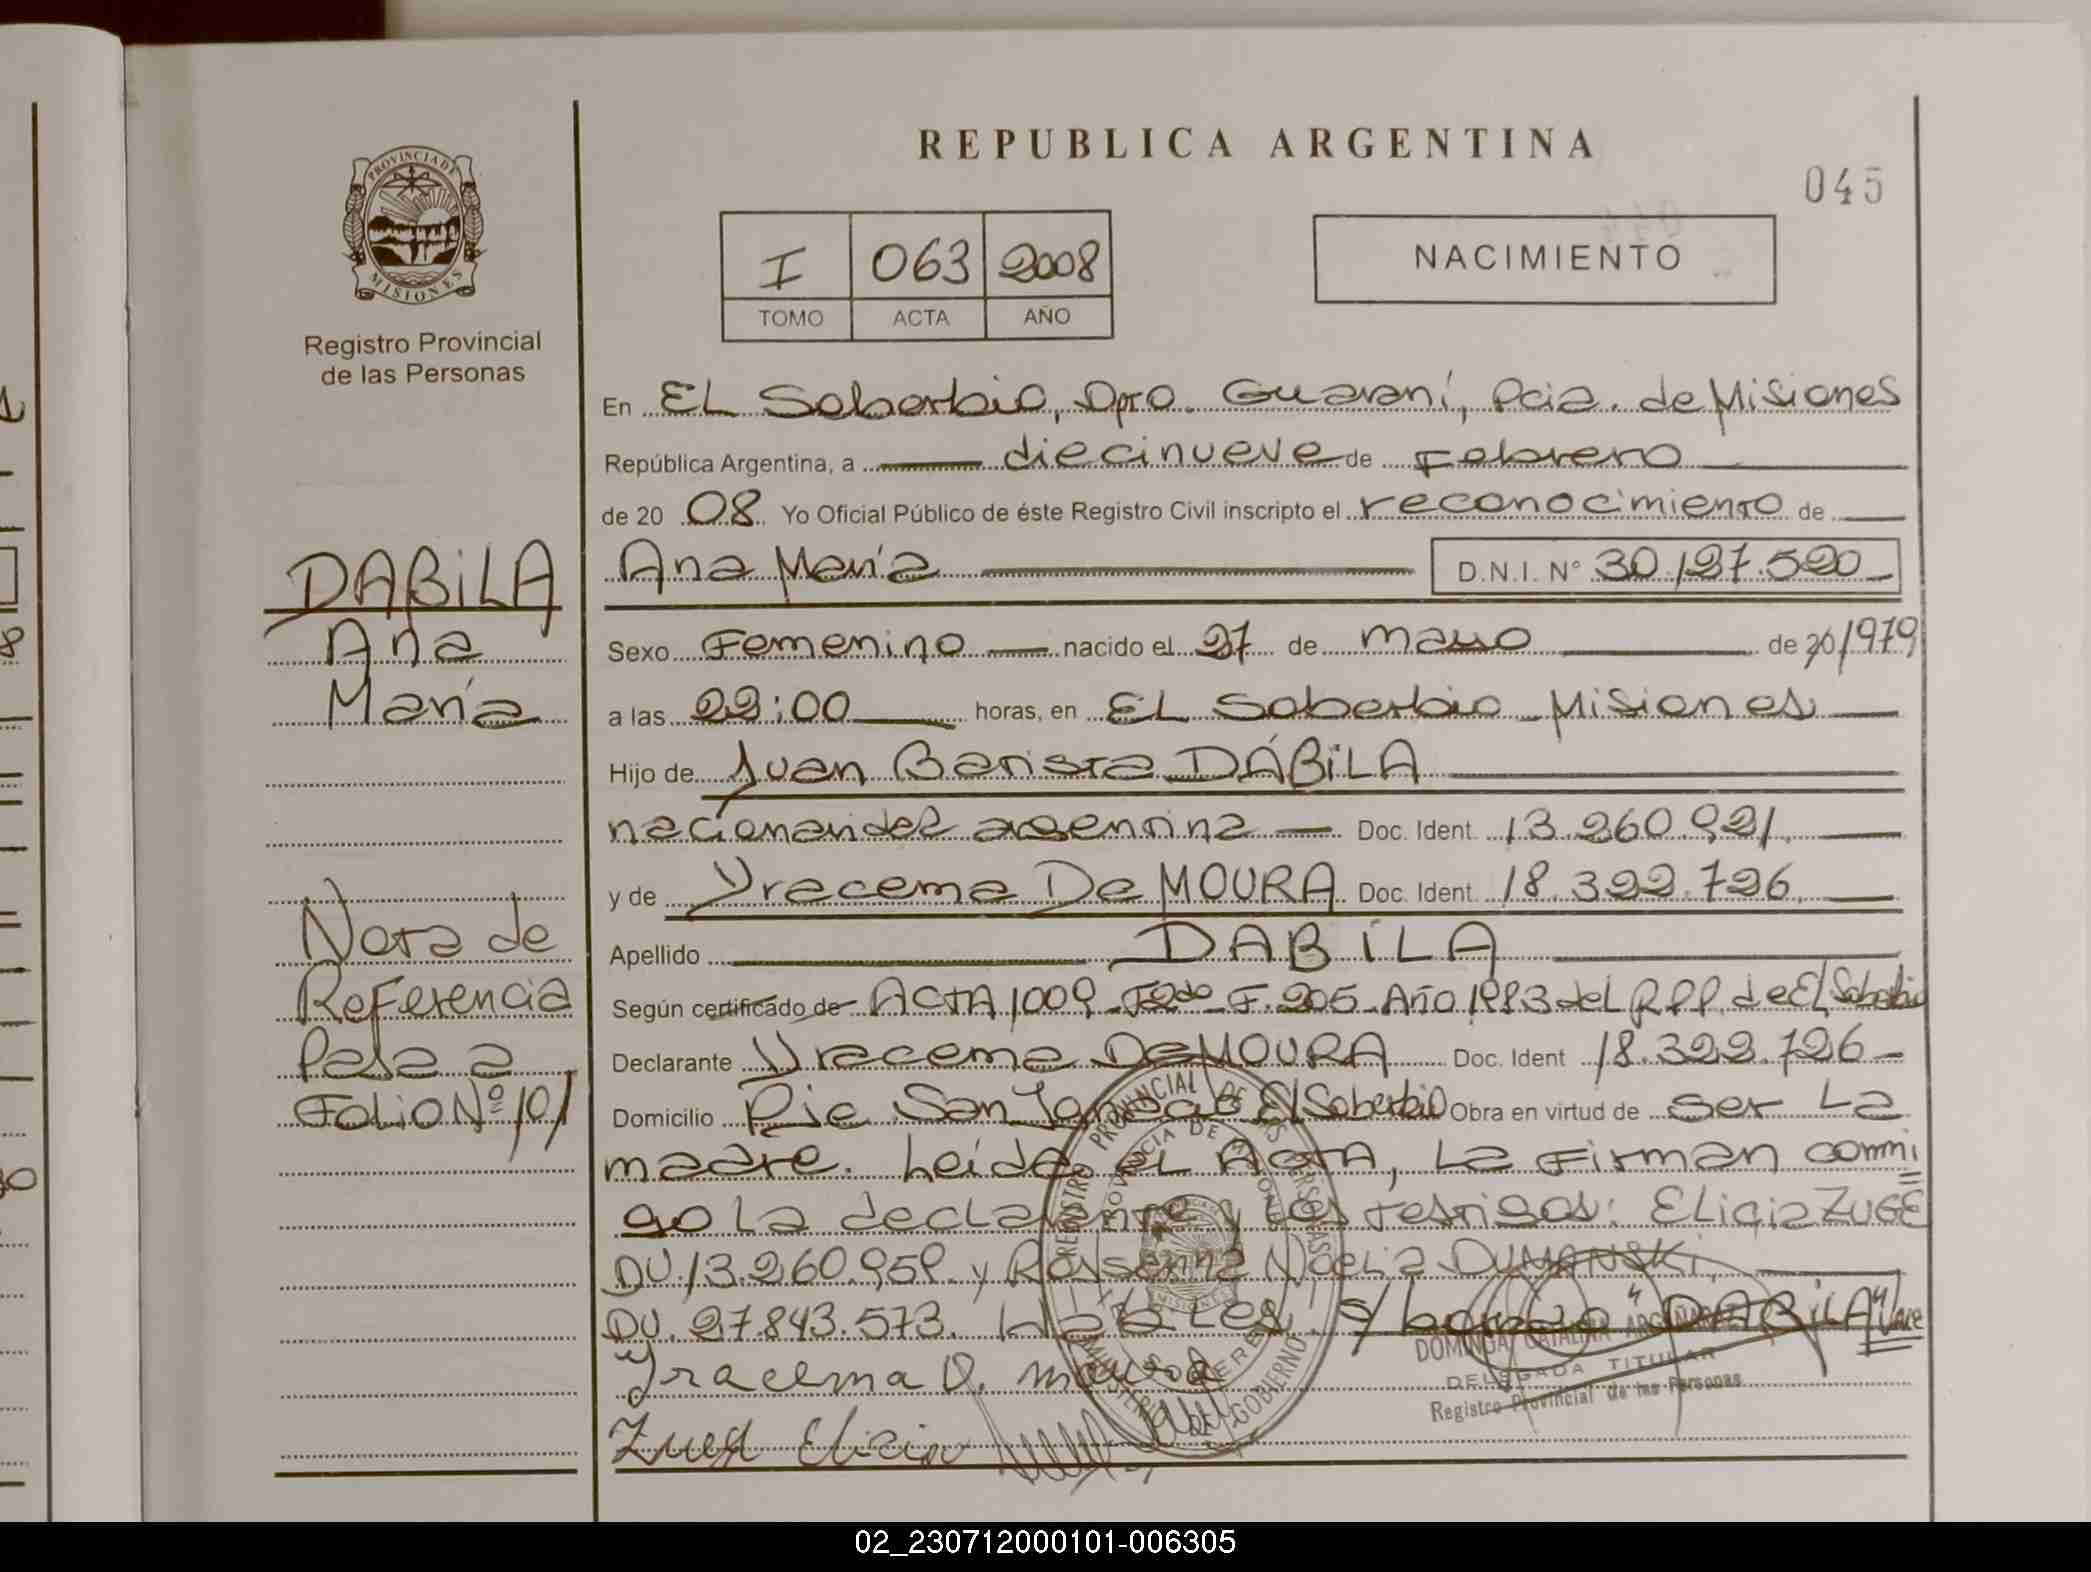 REPUBLICA ARGENTINA
045
I 063 2008
TOMO ACTA AÑO
NACIMIENTO
PROVINCIA DE
MISIONES
Registro Provincial
de las Personas
En EL Soberbio, Dpto. Guaraní, Pcia. de Misiones
República Argentina, a diecinueve de Febrero
de 20 08 Yo Oficial Público de éste Registro Civil inscripto el reconocimiento de
DABiLA
Ana María D.N.I. Nº 30.127.520
Ana
María
Sexo Femenino nacido el 27 de marzo de 20/1979
a las 22:00 horas, en EL Soberbio Misiones
Hijo de Juan Batista DÁBiLA
argentina Doc. Ident. 13.260.921
y de Yracema De MOURA Doc. Ident. 18.322.726
Apellido DABiLA
Nota de
Referencia
Pasa a
Folio Nº 101
Según certificado de ACTA 1009 F. 205 Año 1983 del R.P.P. de El Soberbio
Declarante Yracema De MOURA Doc. Ident 18.322.726
Domicilio El Soberbio Obra en virtud de ser La
madre. Leída EL ACTA, La Firman conmi
go La declarante y Los testigos: ELicia ZUGE
DU.13.260.959. y Rossanna Noelia DUMANSKI,
DU. 27.843.573. S/borrado "DABiLA" Vale
Yracema D. Moura
Zuge Elicia
DOMINGA CATALINA
DELEGADA TITULAR
Registro Provincial de las Personas
02_230712000101-006305